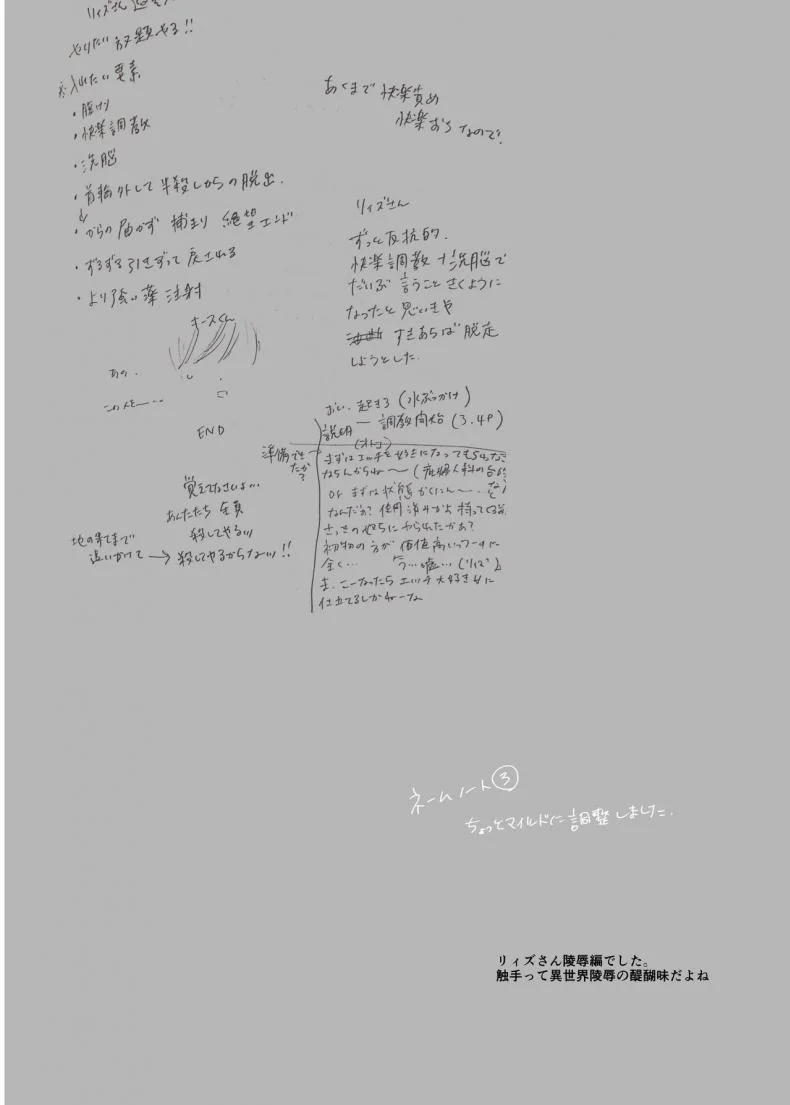 リィズさん
やりたい放題やる!!
入れたい要素
・腹けり
・快楽調教
・洗脳
・首輪外して半殺しからの脱出.
・からの届かず 捕まり 絶望エンド
・ずるずる引きずって戻される
・より強い薬 注射
キースくん
あの.
この人を……
END
あくまで 快楽責め
快楽おち なので.
リィズさん
ずっと反抗的.
快楽調教+洗脳で
だいぶ 言うこときくように
なったと思いきや
すきあらば 脱走
しようとした.
おい、起きろ (水ぶっかけ)
説明 ー 調教開始 (3.4P)
(オトコ)
準備できたか?
まずはエッチを好きになってもらわな
ならんからね〜 (産婦人科の台など)
or まずは状態かくにん〜.
なんだぁ? 使用済みかよ
さっきのやろうにやられたかぁ?
初物の方が 価値高いっつーのに
全く… う…嘘…(リィズ)
ま、こーなったら エッチ大好きに
仕立てるしかねーな
覚えてなさいよ…
あんたたち 全員
殺してやるッ
地の果てまで
追いかけて → 殺してやるからなッ!!
ネームノート③
ちょっとマイルドに調整しました.
リィズさん陵辱編でした。
触手って異世界陵辱の醍醐味だよね